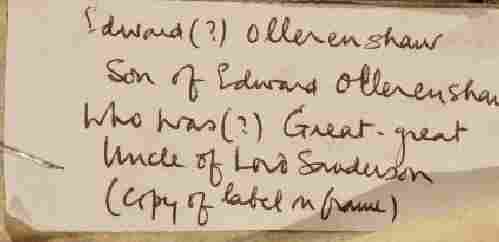 Edward (?) Ollerenshaw
Son of Edward Ollerenshaw
who was (?) Great-great
Uncle of Lord Sanderson
(copy of label on frame)